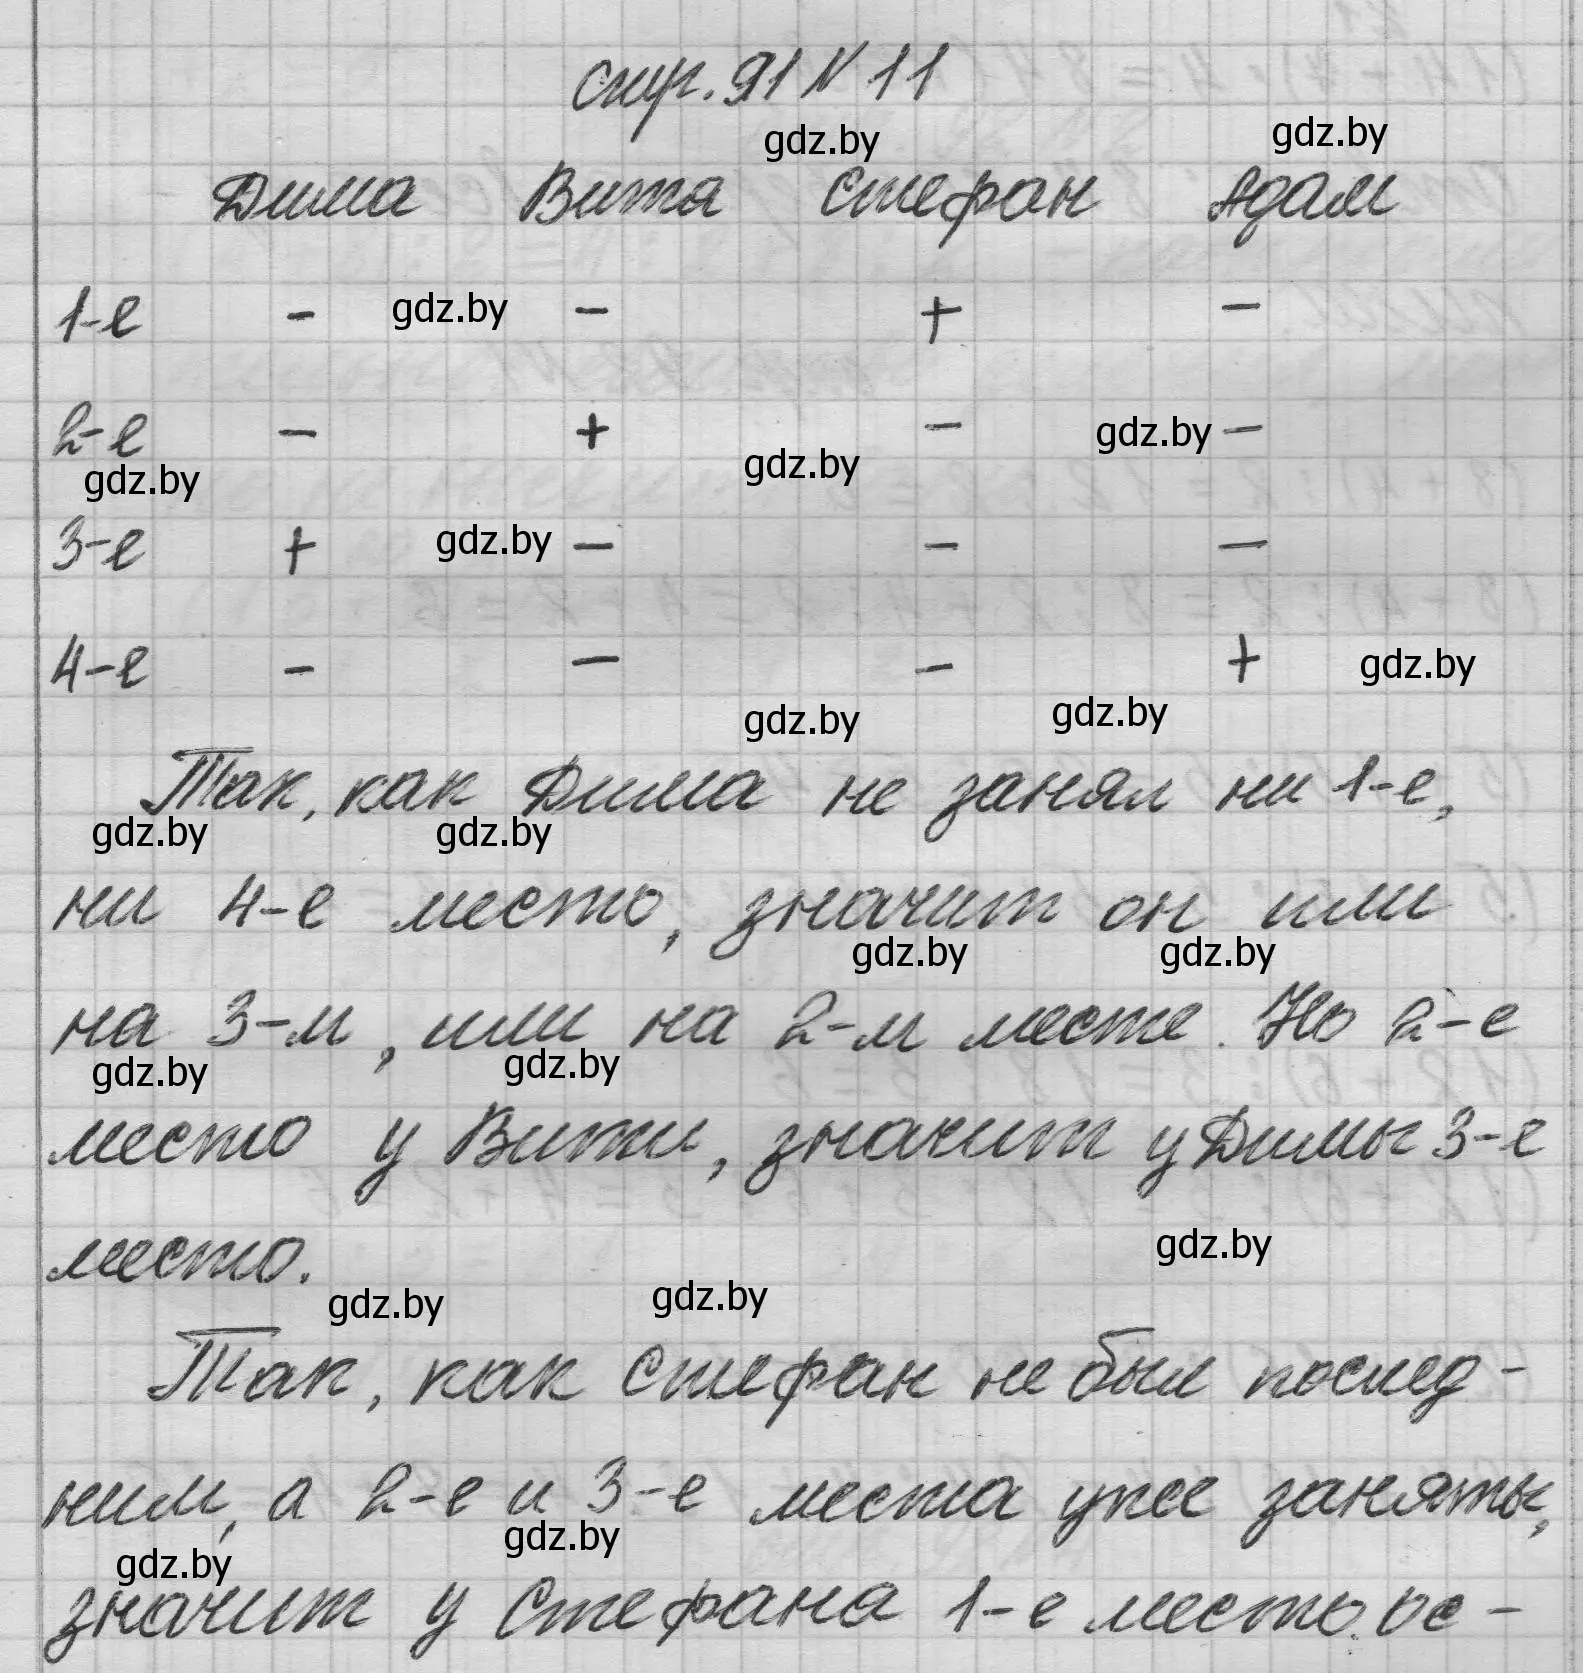 стр. 91 N 11
gdz.by gdz.by
Дима Витя Стефан Адам
1-е - gdz.by - + -
2-е - + - gdz.by -
gdz.by gdz.by
3-е + gdz.by - - -
4-е - - - + gdz.by
gdz.by gdz.by
Так, как Дима не занял ни 1-е,
gdz.by gdz.by
ни 4-е место, значит он или
gdz.by gdz.by
на 3-м, или на 2-м месте. Но 2-е
gdz.by gdz.by
место у Вити, значит у Димы 3-е
место.
gdz.by
gdz.by gdz.by
Так, как Стефан не был послед-
ним, а 2-е и 3-е места уже заняты,
gdz.by gdz.by
значит у Стефана 1-е место. Ос-